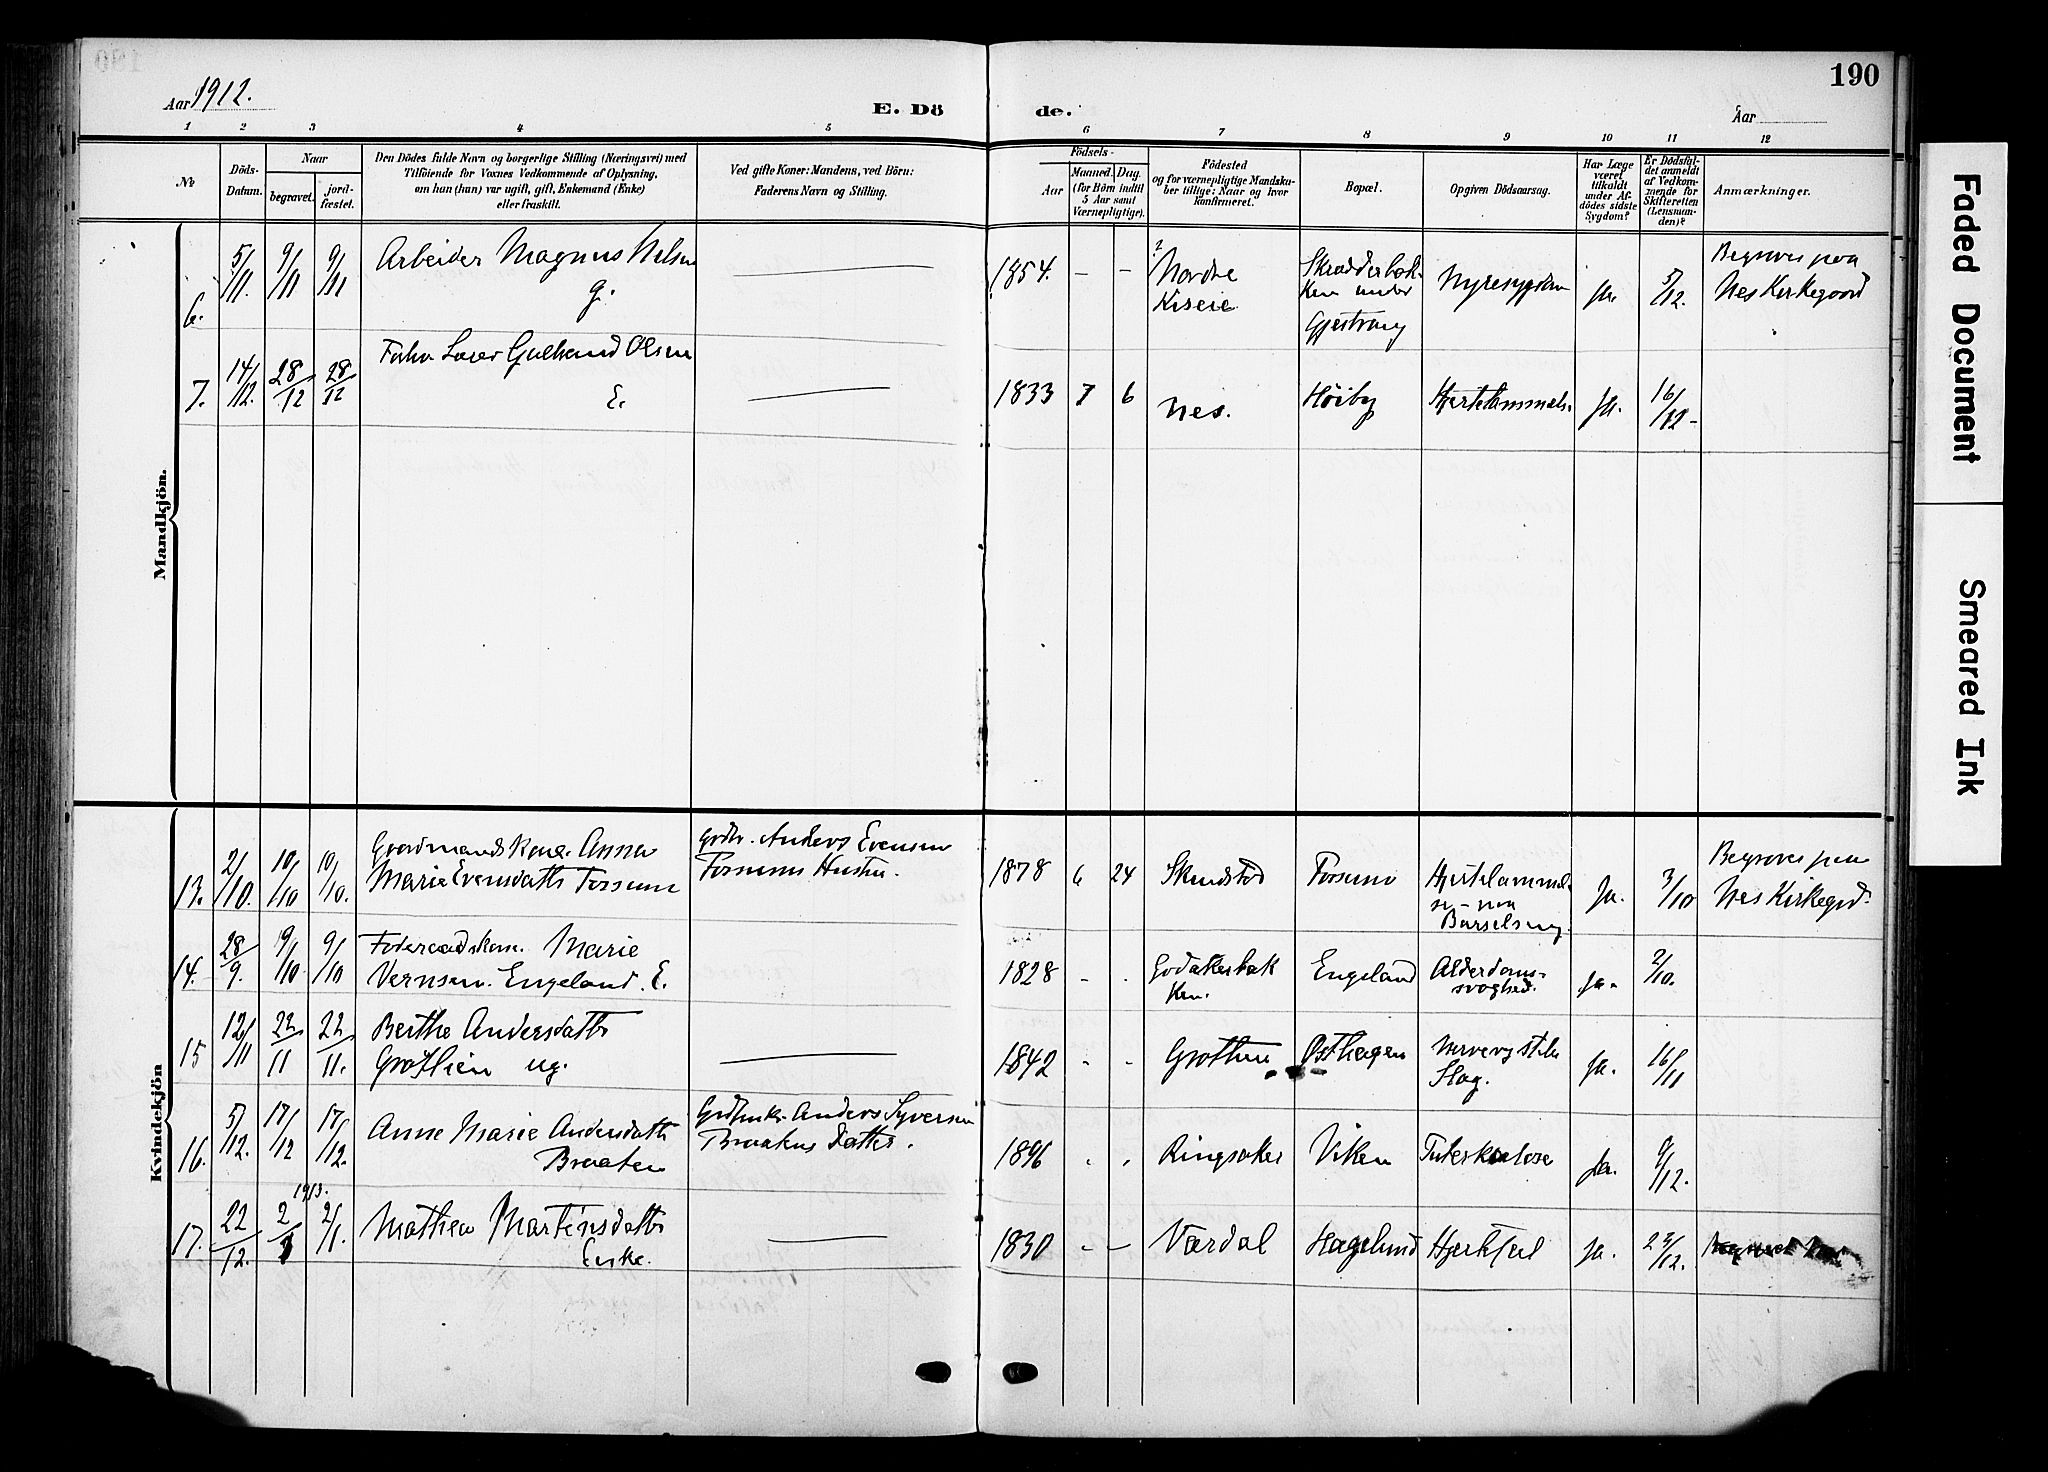 190
Aar 1912.
E. Dö de.
Aar
1 2 3 4 5 6 7 8 9 10 11 12
No
Döds-Datum.
Naar
begravet.
jord-fæstet.
Den Dödes fulde Navn og borgerlige Stilling (Næringsvei) med
Tilföiende for Voxnes Vedkommende af Oplysning,
om hun (han) var ugift, gift, Enkemand (Enke)
eller fraskilt.
Ved gifte Koner: Mandens, ved Börn:
Faderens Navn og Stilling.
Födsels-
Aar
Maaned. Dag.
(for Börn indtil
5 Aar samt
Værnepligtige).
Födested
og for værnepligtige Mandska-
ber tillige: Naar og hvor
konfirmeret.
Bopæl.
Opgiven Dödsaarsag.
Har Læge
været
tilkaldt
under Af-
dödes sidste
Sygdom?
Er Dödsfal-
det anmeldt
af Vedkom-
mende for
Skifteretten
(Lensman-
den)?
Anmærkninger.
Mandkjön.
6. 5/11. 9/11 9/11 Arbeider Magnus Nilsen
g.
1854. - - Nordre
Kiseie
Skrædderbak-
ken under
Gjestvang
Nyresygdom
Ja. 5/12.
Begraves paa
Nes Kirkegaard
7. 14/12. 28/12 28/12 Olsen
E.
1833 7 6 Nes. Höiby Hjertelammels. Ja. 16/12-
Kvindekjön
13. 2/10. 10/10 10/10. Gaardmandskone. Anna
Marie Evensdatter Forsum
Grdbr. Anders Evensen
Forsums Hustru.
1878 6 24 Skredstad Forsum Hjertelammel-
se - paa
Barselseng.
Ja. 3/10
Begraves paa
Nes Kirkegrd.
14. 28/9. 9/10 9/10 Foderaadskone. Marie
Engeland. E.
1828 - . Godakerbak
ken.
Engeland Alderdoms-
svaghed.
Ja. 2/10.
15 12/11 22/11 22/11. Berthe Andersdatter
Grøtlien ug.
1842 - - Østhagen
Slag.
Ja. 16/11
16. 5/12. 17/12 17/12. Anne Marie Andersdatter
Braaten
Anders Syversen
Braatens Datter.
1896 . . Ringsaker Viken Tuberkulose Ja. 9/12.
17. 22/12. 1913. 2/1 2/1. Mathea Martinsdatter
Enke.
1830 - - Vardal Hagelund Hjertefeil Ja. 23/12.
Faded Document
Smeared Ink